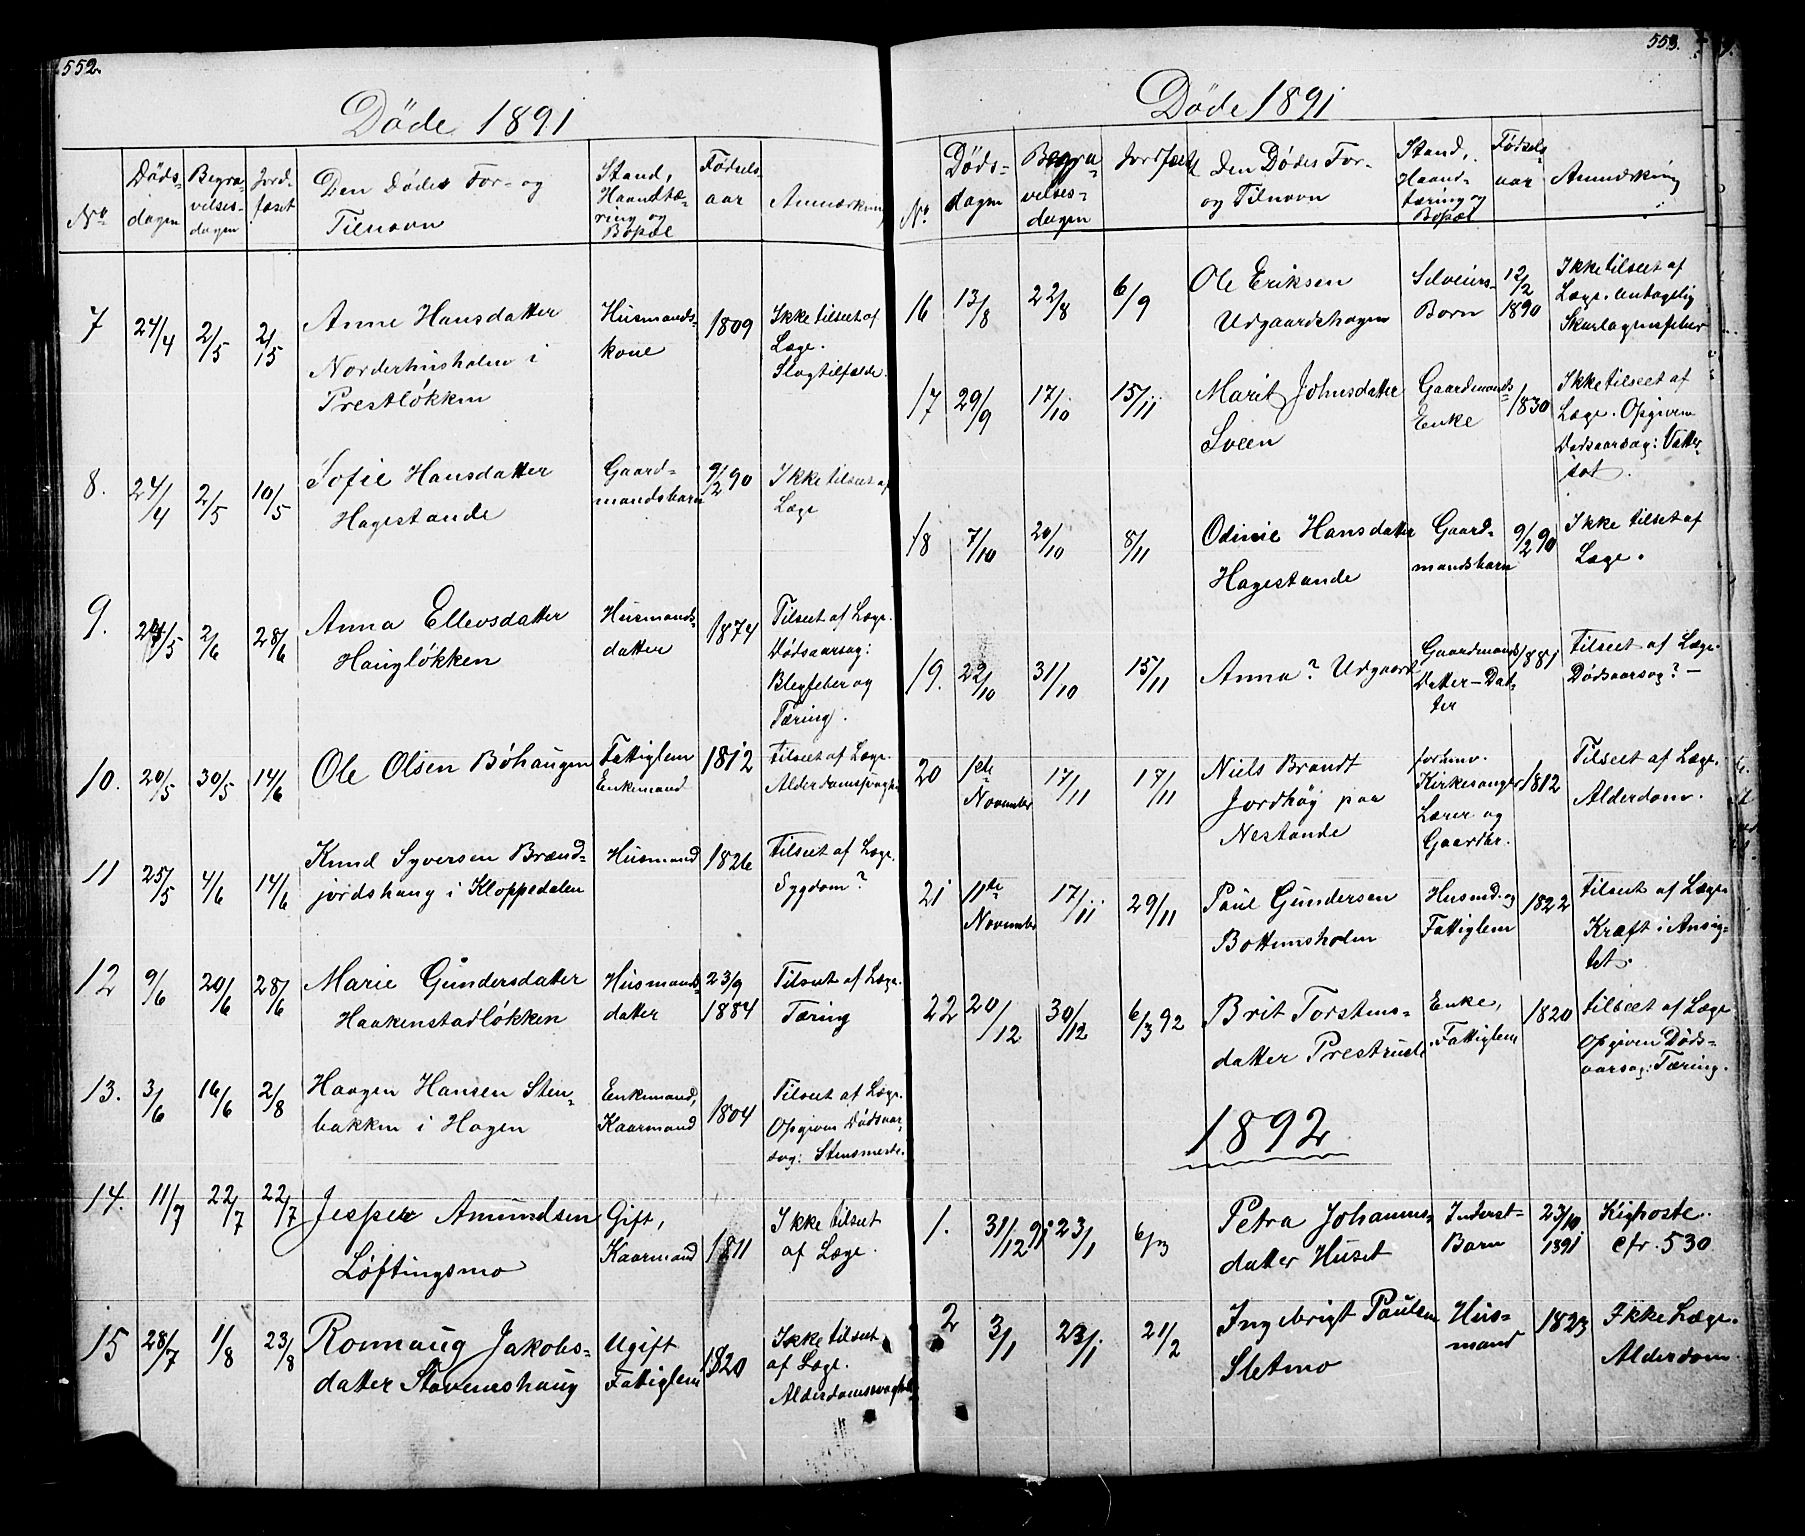 552.
Döde 1891
No
Döds-
dagen
Begra-
velses-
dagen
Jord-
fæset
Den Dödes For- og
Tilnavn
Stand,
Haandtæ-
ring og
Bopæl
Födsels
aar
Anmærkning
7
24/4
2/5
2/5
Anne Hansdatter
Norderhusholen i
Prestløkken
Husmands-
kone
1809
Ikke tilseet af
Læge.
Slagtilfælde.
8.
24/4
2/5
10/5
Sofie Hansdatter
Hagestande
Gaard-
mandsbarn
9/2 90
Ikke tilseet af
Læge
9.
2/6
28/6
Anna Ellevsdatter
Haugløkken
Husmands-
datter
1874
Tilseet af Læge.
Dødsaarsag:
Blegfeber og
Tæring.
10.
20/5
30/5
14/6
Ole Olsen Böhaugen
Fattiglem
Enkemand
1812
Tilseet af Læge.
11
25/5
4/6
14/6
Knud Syversen Brænd-
jordshaug i Kloppedalen
Husmand
1826
Tilseet af Læge.
Sygdom?
12
9/6
20/6
28/6
Marie Gundersdatter
Haakenstadløkken
Husmands-
datter
23/9
1884
Tilseet af Læge.
Tæring
13.
3/6
16/6
2/8
Haagen Hansen Sten-
bakken i Hagen
Enkemand,
Kaarmand
1804
Tilseet af Læge.
Opgiven Dødsaar-
sag: Stensmerte.
14.
11/7
22/7
22/7
Jesper Amundsen
Løftingsmo
Gift,
Kaarmand
1811
Ikke tilseet
af Læge.
15
28/7
1/8
23/8
Ronnaug Jakobs-
datter Stavenshaug
Ugift
Fattiglem
1820
Ikke tilseet
af Læge.
553.
Döde 1891
No.
Döds-
dagen
Begra-
velses-
dagen
Jordfæstet
Den Dödes For-
og Tilnavn
Stand,
Haand-
tæring og
Bopæl
Födsels-
aar
Anmærkning
16
13/8
22/8
6/9
Ole Eriksen
Udgaardshagen
Selveiers-
Barn
12/2
1890
Ikke tilseet af
Læge. Antagelig
Skarlagensfeber
17
29/9
17/10
15/11
Marit Johnsdatter
Sveen
Gaardmands-
Enke
1830
Ikke tilseet af
Læge. Opgiven
Dødsaarsag: Vatter-
sot.
18
7/10
20/10
8/11
Odinie Hansdatter
Hagestande
Gaard-
mandsbarn
9/2 90
Ikke tilset af
Læge.
19.
22/10
31/10
15/11
Anna? Udgaard
Gaardmands
Datter-Dat-
ter
1881
Tilseet af Læge.
Dødsaarsag? –
20
1ste
November
17/11
17/11
Niels Brandt
Jordhøy paa
Nestande
forhenv.
Kirkesanger
Lærer og
Gaardbr.
1812
Tilseet af Læge.
Alderdom.
21
11te
November
17/11
29/11
Paul Gundersen
Bottemsholen
Husmd. og
Fattiglem
1822
Tilseet af Læge.
Kræft i Ansig-
tet.
22
20/12
30/12
6/3 92
Brit Torstens-
datter Prestrude
Enke,
Fattiglem
1820
Tilseet af Læge
Opgiven Døds-
aarsag: Tæring.
1892
1.
31/12 91
23/1
6/3
Petra Johannes-
datter Huset
Inderst-
Barn
23/10
1891
Kighoste.
cfr. 530
2
3/1
23/1
21/2
Ingebrigt Paulsen
Sletmo
Hus-
mand
1823
Ikke Læge.
Alderdom